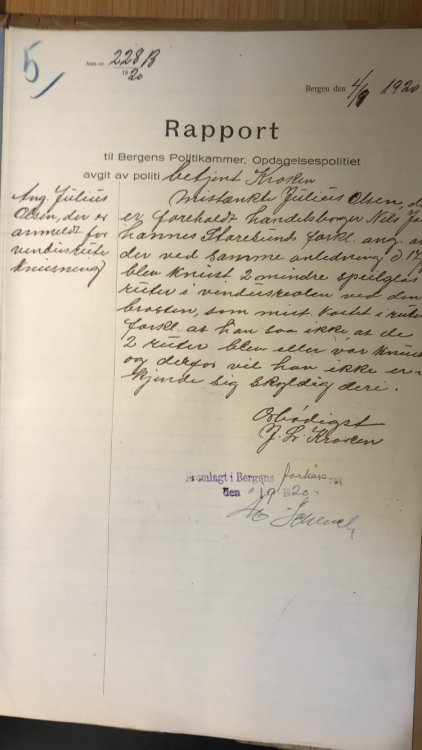 5
Ann. nr. 228 B
1920
Bergen den 4/9 1920
Rapport
til Bergens Politikammer, Opdagelsespolitiet
avgit av politi betjent Kroken
Ang. Julius
Olsen, der er
anmeldt for
vindusrute
knusning
Mistænkte Julius Olsen, d
er foreholdt handelsborger Nils Jo
hannes Storebunds forkl. ang. at
der ved samme anledning d 17/
blev knust 2 mindre speilglas
ruter i vindusreolen ved den
brosten, som mist. kastet i ruten
forkl. at han saa ikke at de
2 ruter blev eller var knust
og derfor vil han ikke er-
kjende sig skyldig deri.
Ærbødigst
J. L. Kroken
Fremlagt i Bergens forhørsret
den /9 1920.